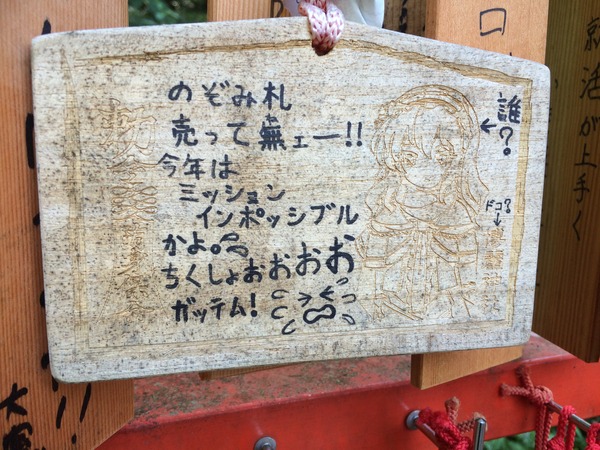 のぞみ札
売って無ェー!!
今年は
ミッション
インポッシブル
かよ。
ちくしょおおおお
ガッテム!
誰?
ドコ?
就活が上手く